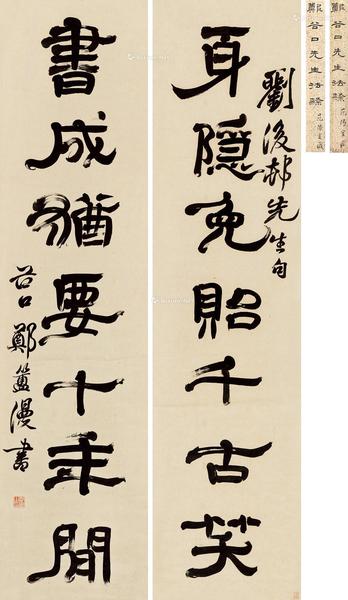 身隱免貽千古笑
劉後村先生句
書成猶要十年閒
谷口鄭簠漫書
鄭谷口先生法隸
鄭谷口先生法隸